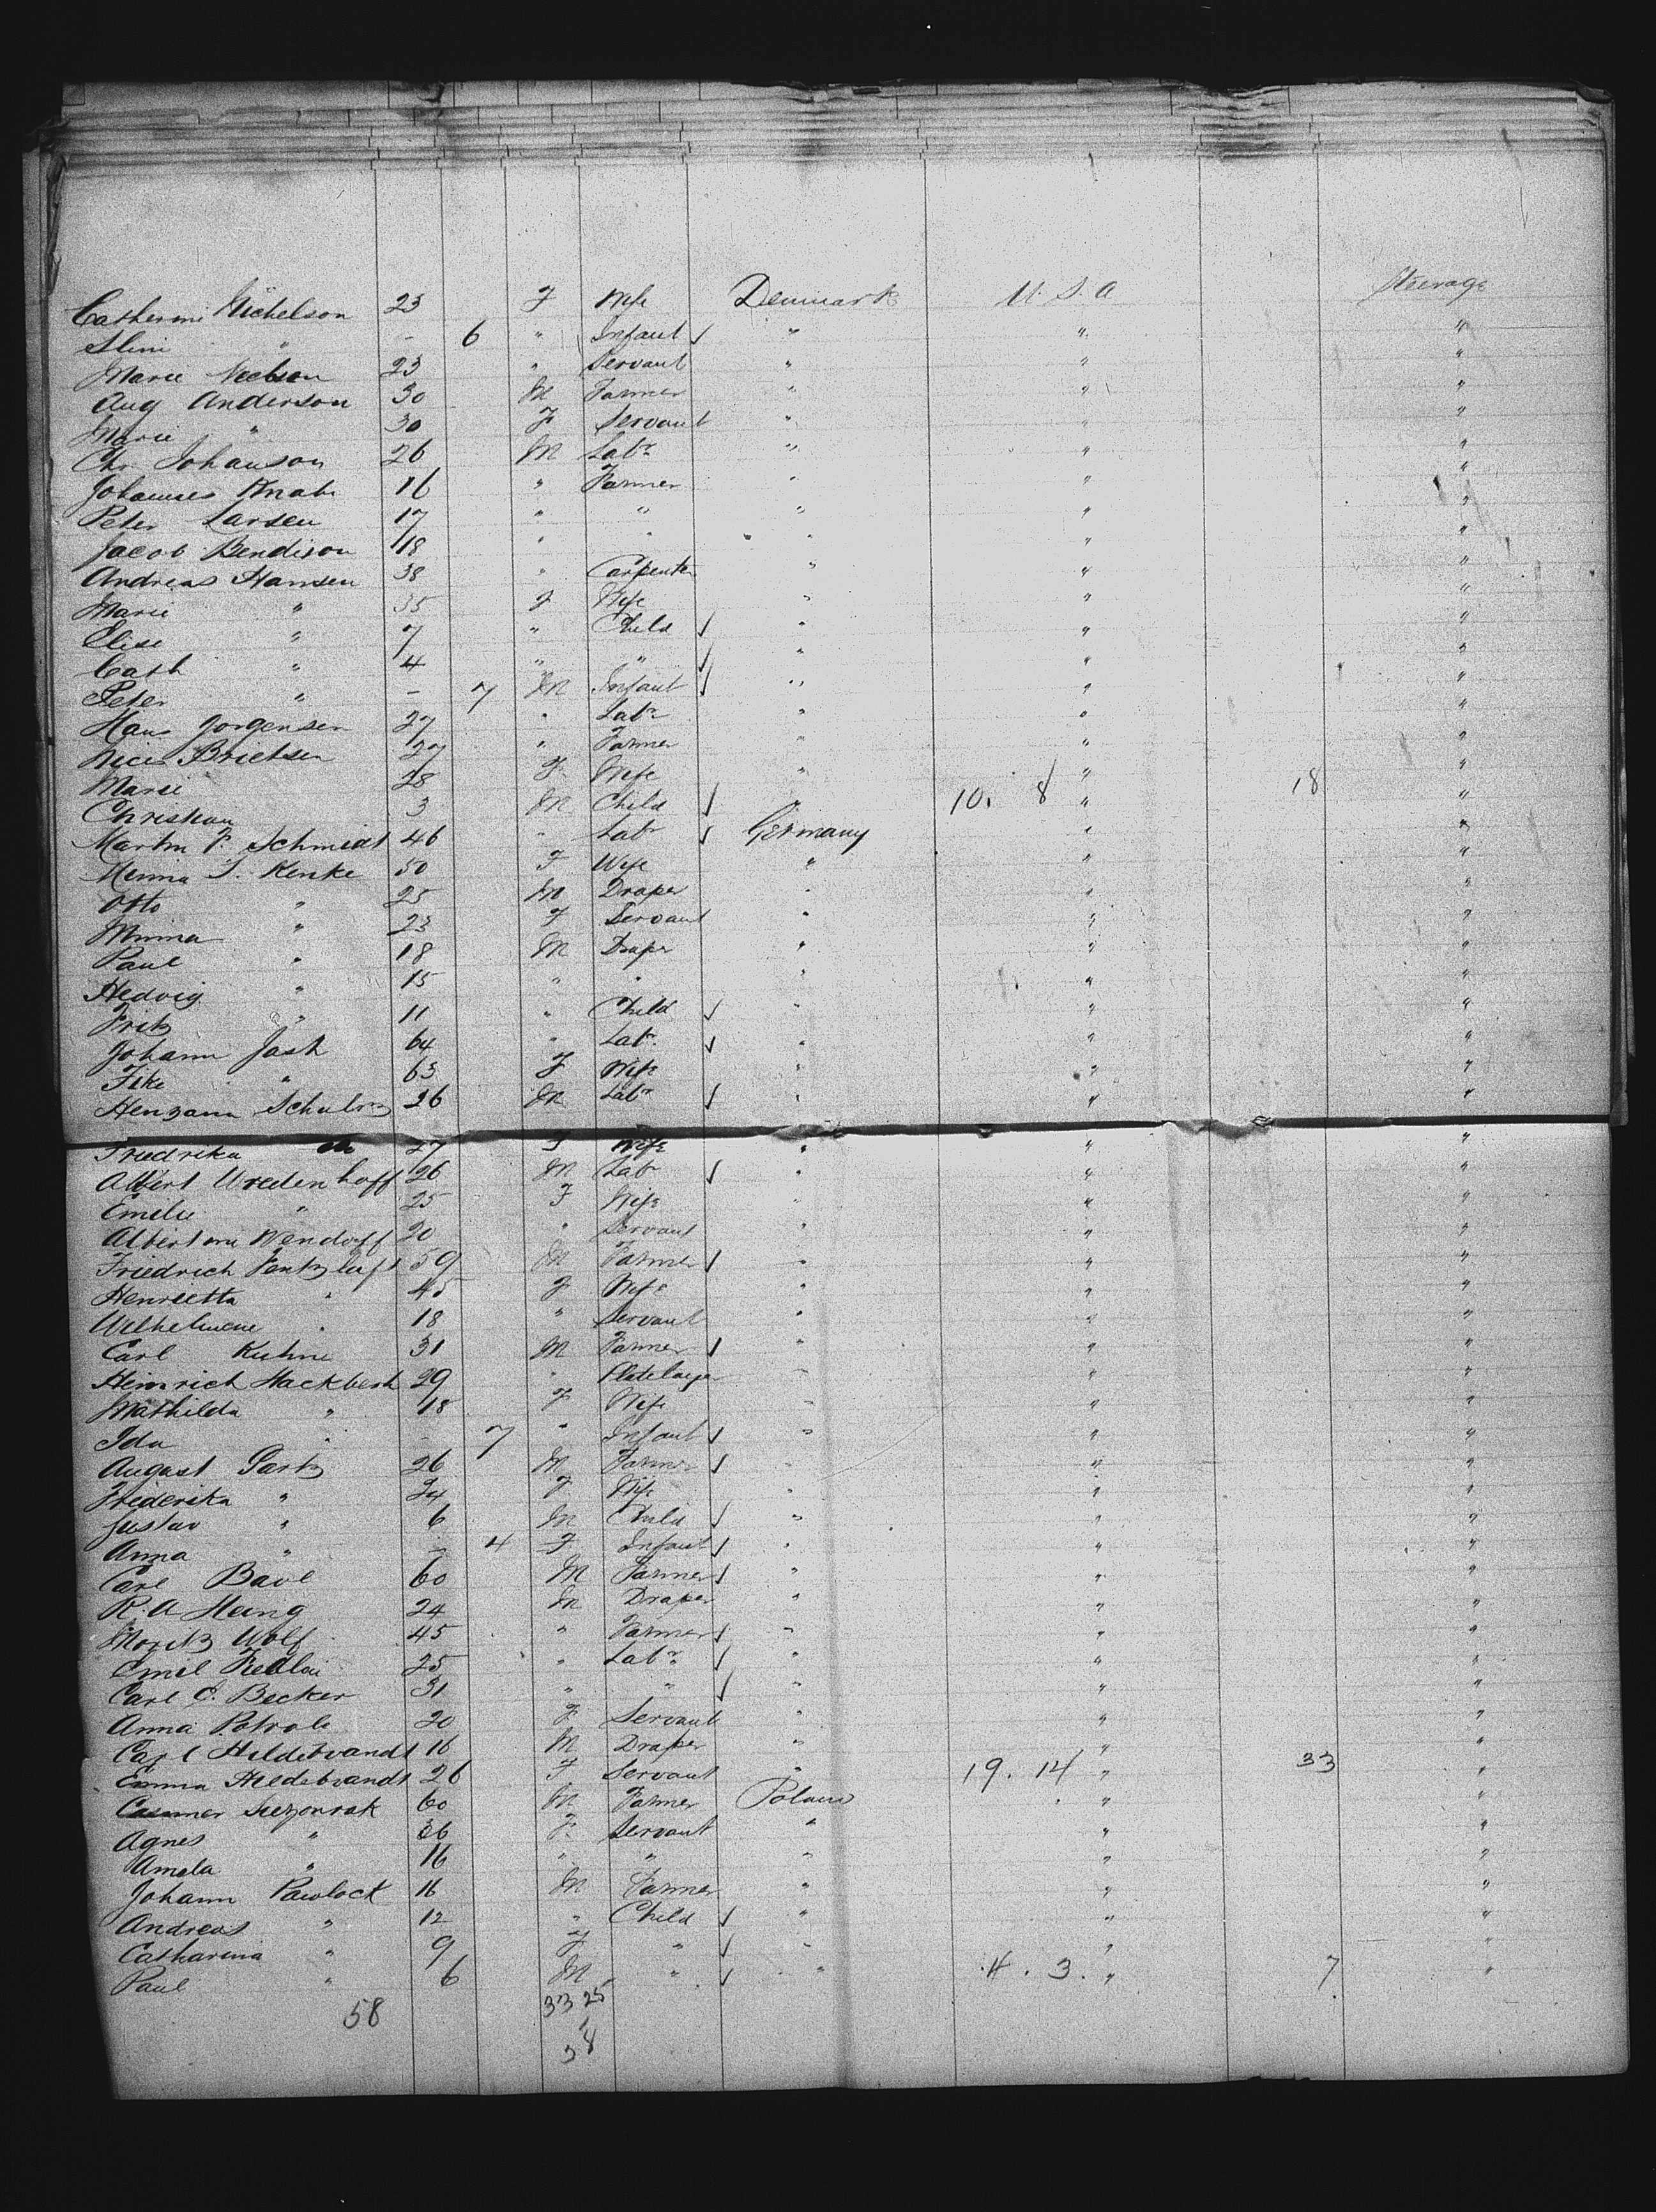 Catherine Michelson 23 F Wife Denmark U.S.A Steerage
Stini " - 6 " Infant ✓ " " "
Marie Neelson 23 " Servant " " "
Aug Anderson 30 M Farmer " " "
Marie " 30 F Servant " " "
Chr. Johanson 26 M Labr " " "
Johannes Knabe 16 " Farmer " " "
Peter Larsen 17 " " " " "
Jacob Bendison 18 " " " " "
Andreas Hansen 38 " Carpenter " " "
Marie " 35 F Wife " " "
Elise " 7 " Child ✓ " " "
Cath " 4 " " ✓ " " "
Peter " - 7 M Infant ✓ " " "
Hans Jorgensen 27 " Labr " " "
Brietsen 27 " Farmer " " "
Marie 28 F Wife " " "
Christian 3 M Child ✓ " 10. 8 " 18 "
Martin P. Schmidt 46 " Labr ✓ Germany " "
Minna S. Renke 50 F Wife " " "
Otto " 25 M Draper " " "
Minna " 23 F Servant " " "
Paul " 18 M Draper " " "
Hedvig " 15 " " " " "
Fritz " 11 " Child ✓ " " "
Johann Jash 64 " Labr. ✓ " " "
Fike " 63 F Wife " " "
Hermann Schulz 26 M Labr ✓ " " "
Friedrika do 27 F Wife " " "
Albert Wredenhoff 26 M Labr ✓ " " "
Emilie " 25 F Wife " " "
Albertine Wendorff 20 " Servant " " "
Friedrich Pentzlaff 59 M Farmer ✓ " " "
Henrietta " 45 F Wife " " "
Wilhelmine " 18 " Servant " " "
Carl Kuhne 31 M Farmer ✓ " " "
Heinrich Hackberth 29 " Platelayer " " "
Mathilda " 18 F Wife " " "
Ida " - 7 " Infant ✓ " " "
August Gartz 26 M Farmer ✓ " " "
Frederika " 24 F Wife " " "
Gustav " 6 M Child ✓ " " "
Anna " - 4 F Infant ✓ " " "
Carl Baul 60 M Farmer ✓ " " "
R. A Heing 24 M Draper " " "
Moritz Wolf 45 " Farmer ✓ " " "
Emil 25 " Labr. ✓ " " "
Carl C. Becker 31 " " ✓ " " "
Anna 20 F Servant " " "
Carl Hildebrandt 16 M Draper " " "
Emma Hildebrandt 26 F Servant " 19. 14 " 33 "
Casimer 60 M Farmer Poland " "
Agnes " 36 F Servant " " "
Amela " 16 " " " " "
Johann Pawlock 16 M Farmer " " "
Andreas " 12 " Child ✓ " " "
Catharina " 9 F " ✓ " " "
Paul " 6 M " ✓ " 4. 3. " 7 "
58 33 25
58